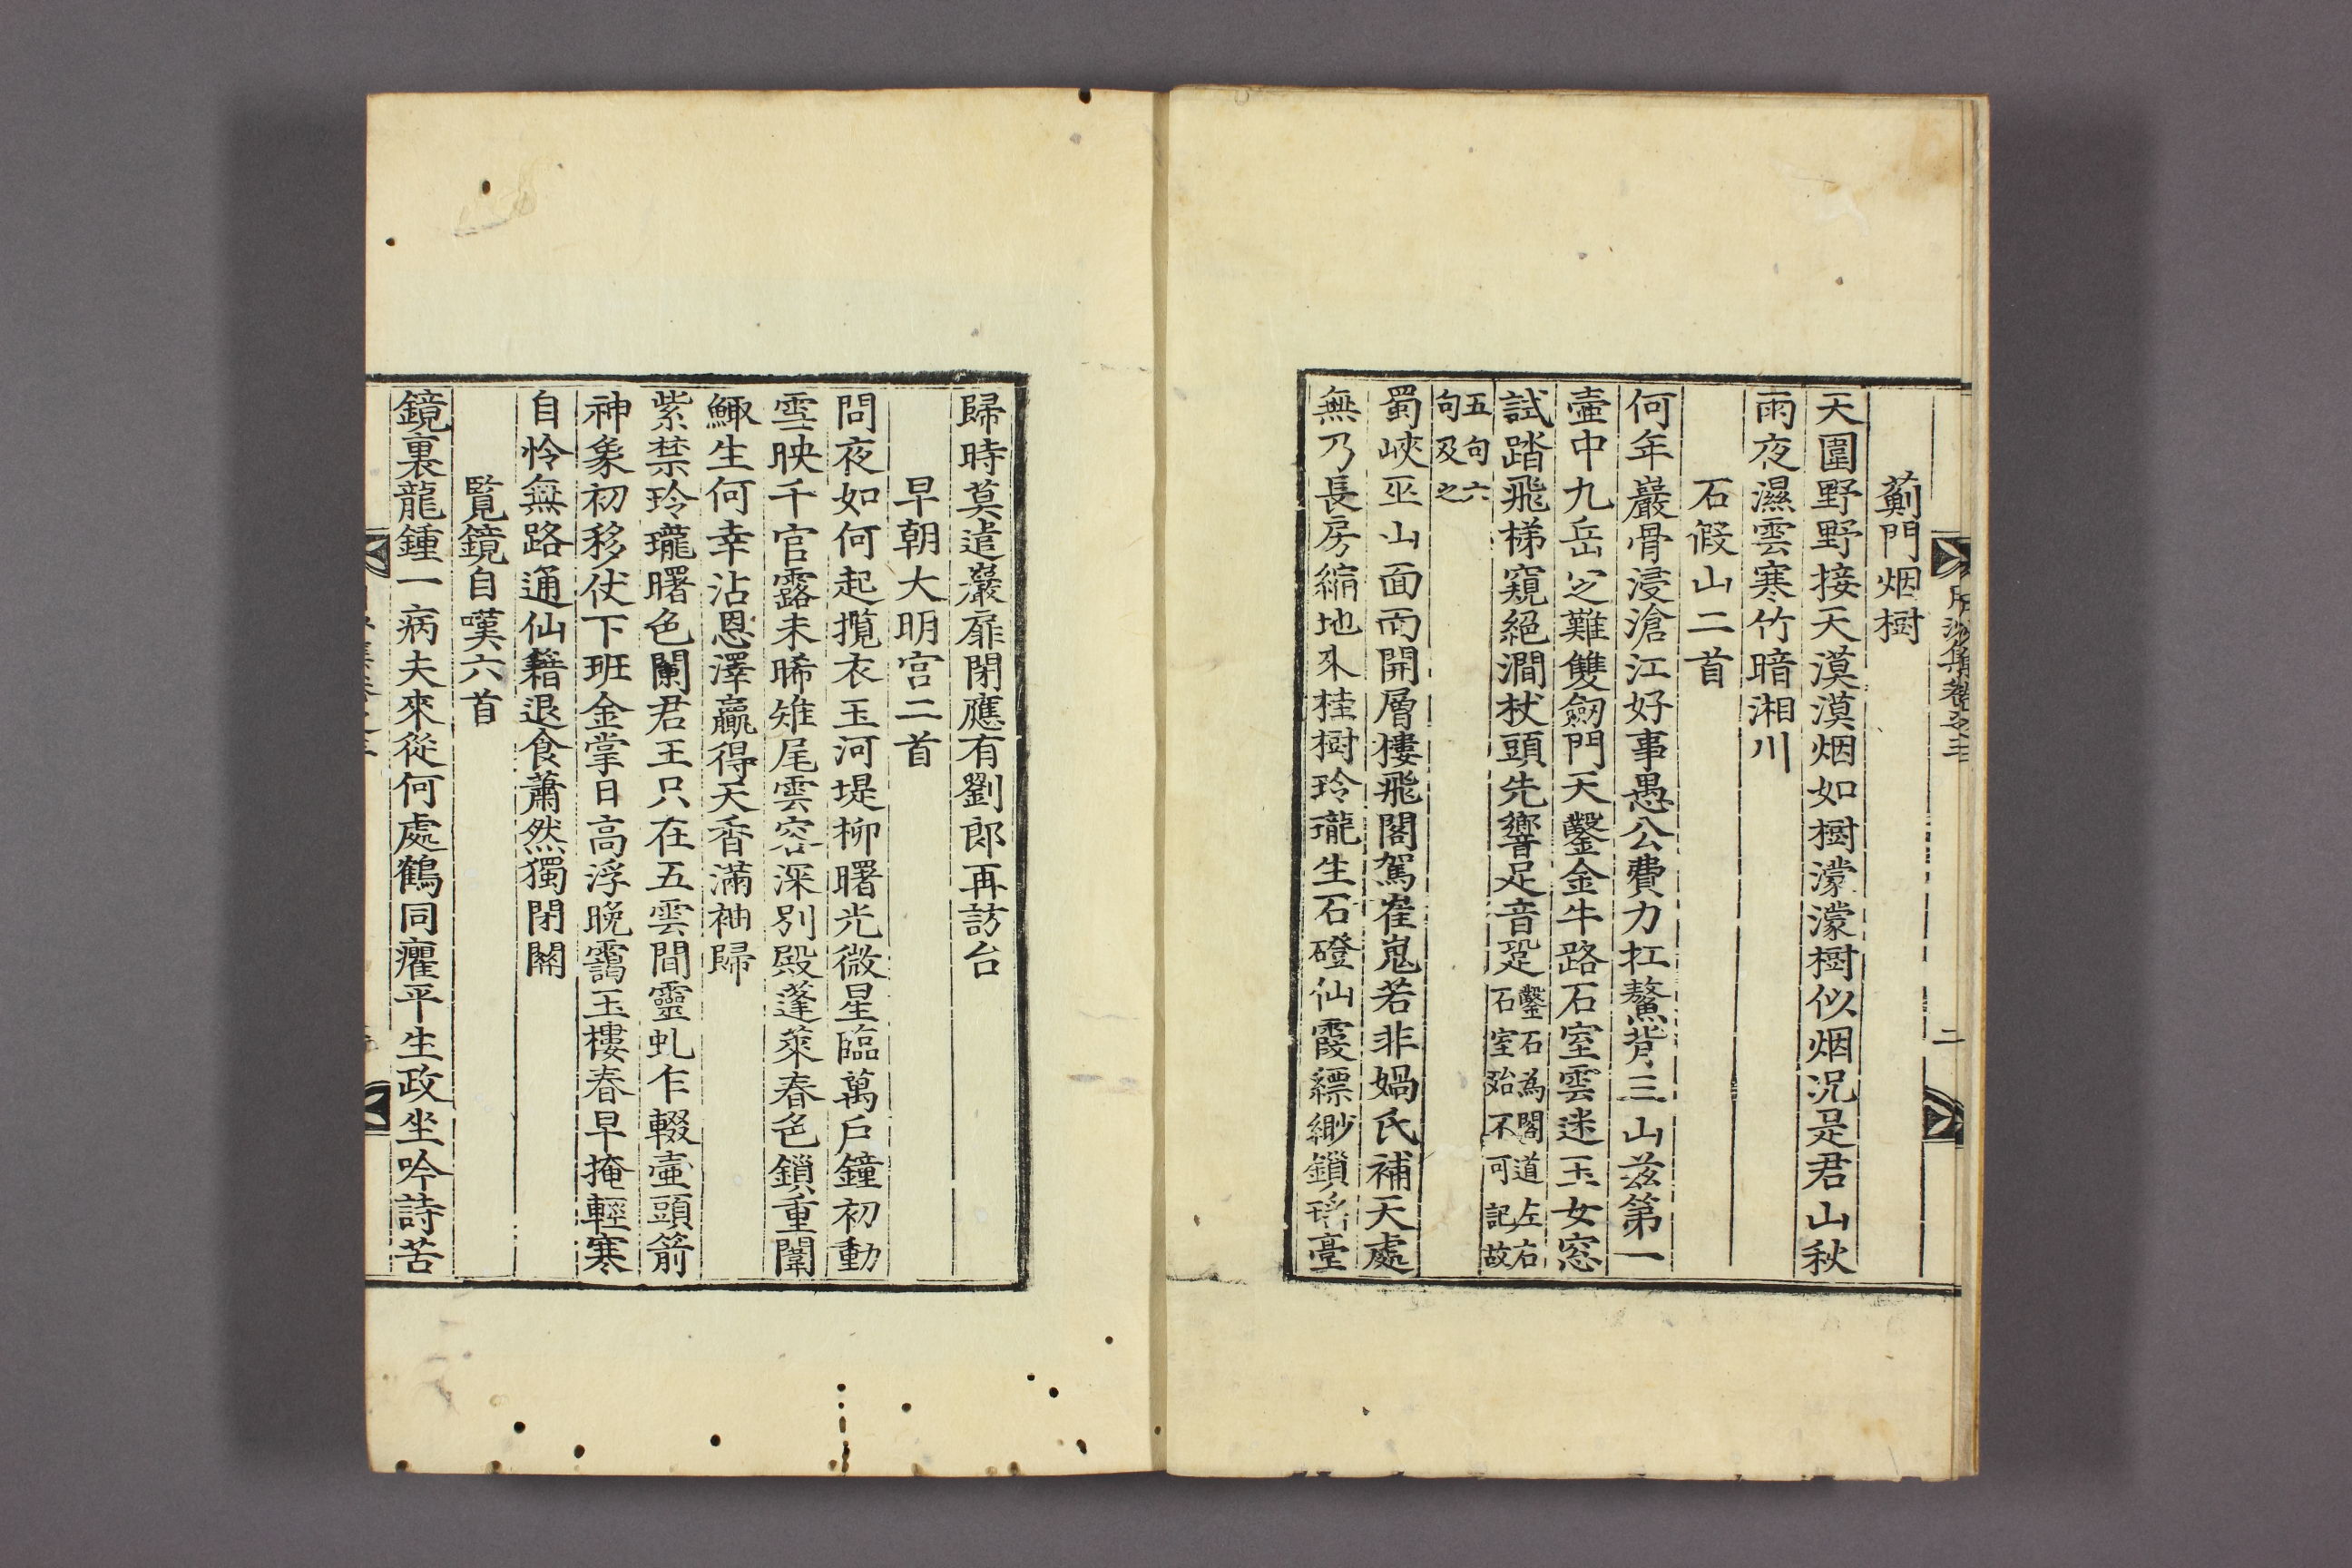 薊門烟樹
天圍野野接天漠漠烟如樹濛濛樹似烟况是君山秋
雨夜濕雲寒竹暗湘川
石假山二首
何年巖骨浸滄江好事愚公費力扛鰲背三山玆第一
壷中九岳㝎難雙劒門天鑿金牛路石室雲迷玉女窓
試踏飛梯窺絕澗杖頭先響足音跫鑿石為閣道左右石室殆不可記故
五句六句及之
蜀峽巫山面面開層樓飛閣駕崔嵬若非媧氏補天處
無乃長房縮地來桂樹玲瓏生石磴仙霞縹緲鎖瑤臺
集卷之三
二
歸時莫遣巖扉閉應有劉郎再訪台
早朝大明宫二首
問夜如何起攬衣玉河堤柳曙光微星臨萬戶鐘初動
雪映千官露未晞雉尾雲容深別殿蓬萊春色鎖重闈
鯫生何幸沾恩澤贏得天香滿袖歸
紫禁玲瓏曙色闌君王只在五雲間靈虬乍輟壷頭箭
神象初移仗下班金掌日高浮晩靄玉樓春早掩輕寒
自怜無路通仙籍退食蕭然獨閉關
覽鏡自嘆六首
鏡裏龍鍾一病夫來從何處鶴同癯平生政坐吟詩苦